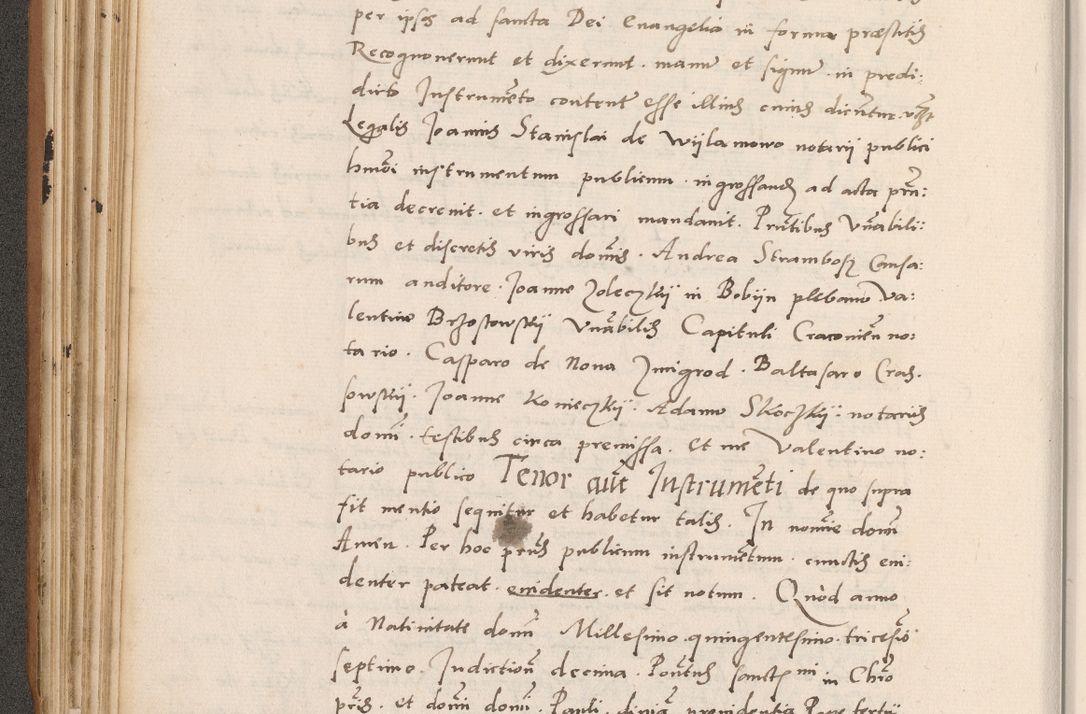 per ipsos ad sancta Dei Euangelia in forma præstitis
Recognouerunt et dixerunt. manu et signu in predi:
dicto Instrumẽto content esse illius cuius dicũtur
Legalis Joannis Stanislai de Wijlamowo notarij publici
hmõi instrumentum publicum. ingrossandũ ad acta prñ:
tia decreuit. et ingrossari mandauit. Prñtibus Vñabili:
bus et discretis viris domis. Andrea Strambosz Causa:
rum auditore. Joanne Zoleczkij in Bobijn plebano Va:
lentino Brzostowskij Vñabilis Capituli Cracouieñ no:
tario. Casparo de Noua Zmigrod. Baltasaro Cras.
sowskij. Joanne Konieczkij. Adamo Skoczkij. notariis
domi. testibus circa premissa. Et me Valentino no:
tario publico Tenor aũt Instrumẽti de quo supra
fit mentio sequitur et habetur talis. In nomie domi
Amen. Per hoc prñs publicum instrumẽtum. cunctis eui:
denter pateat. euidenter. et sit notum. Quòd anno
à Natiuitate domi Millesimo. quingentesimo. tricesiõ
septimo. Indictioñ decima. Pontus sanctmi in Chrõ
pris. et domi domi. Pauli. diuia prouidentia Pape tertij